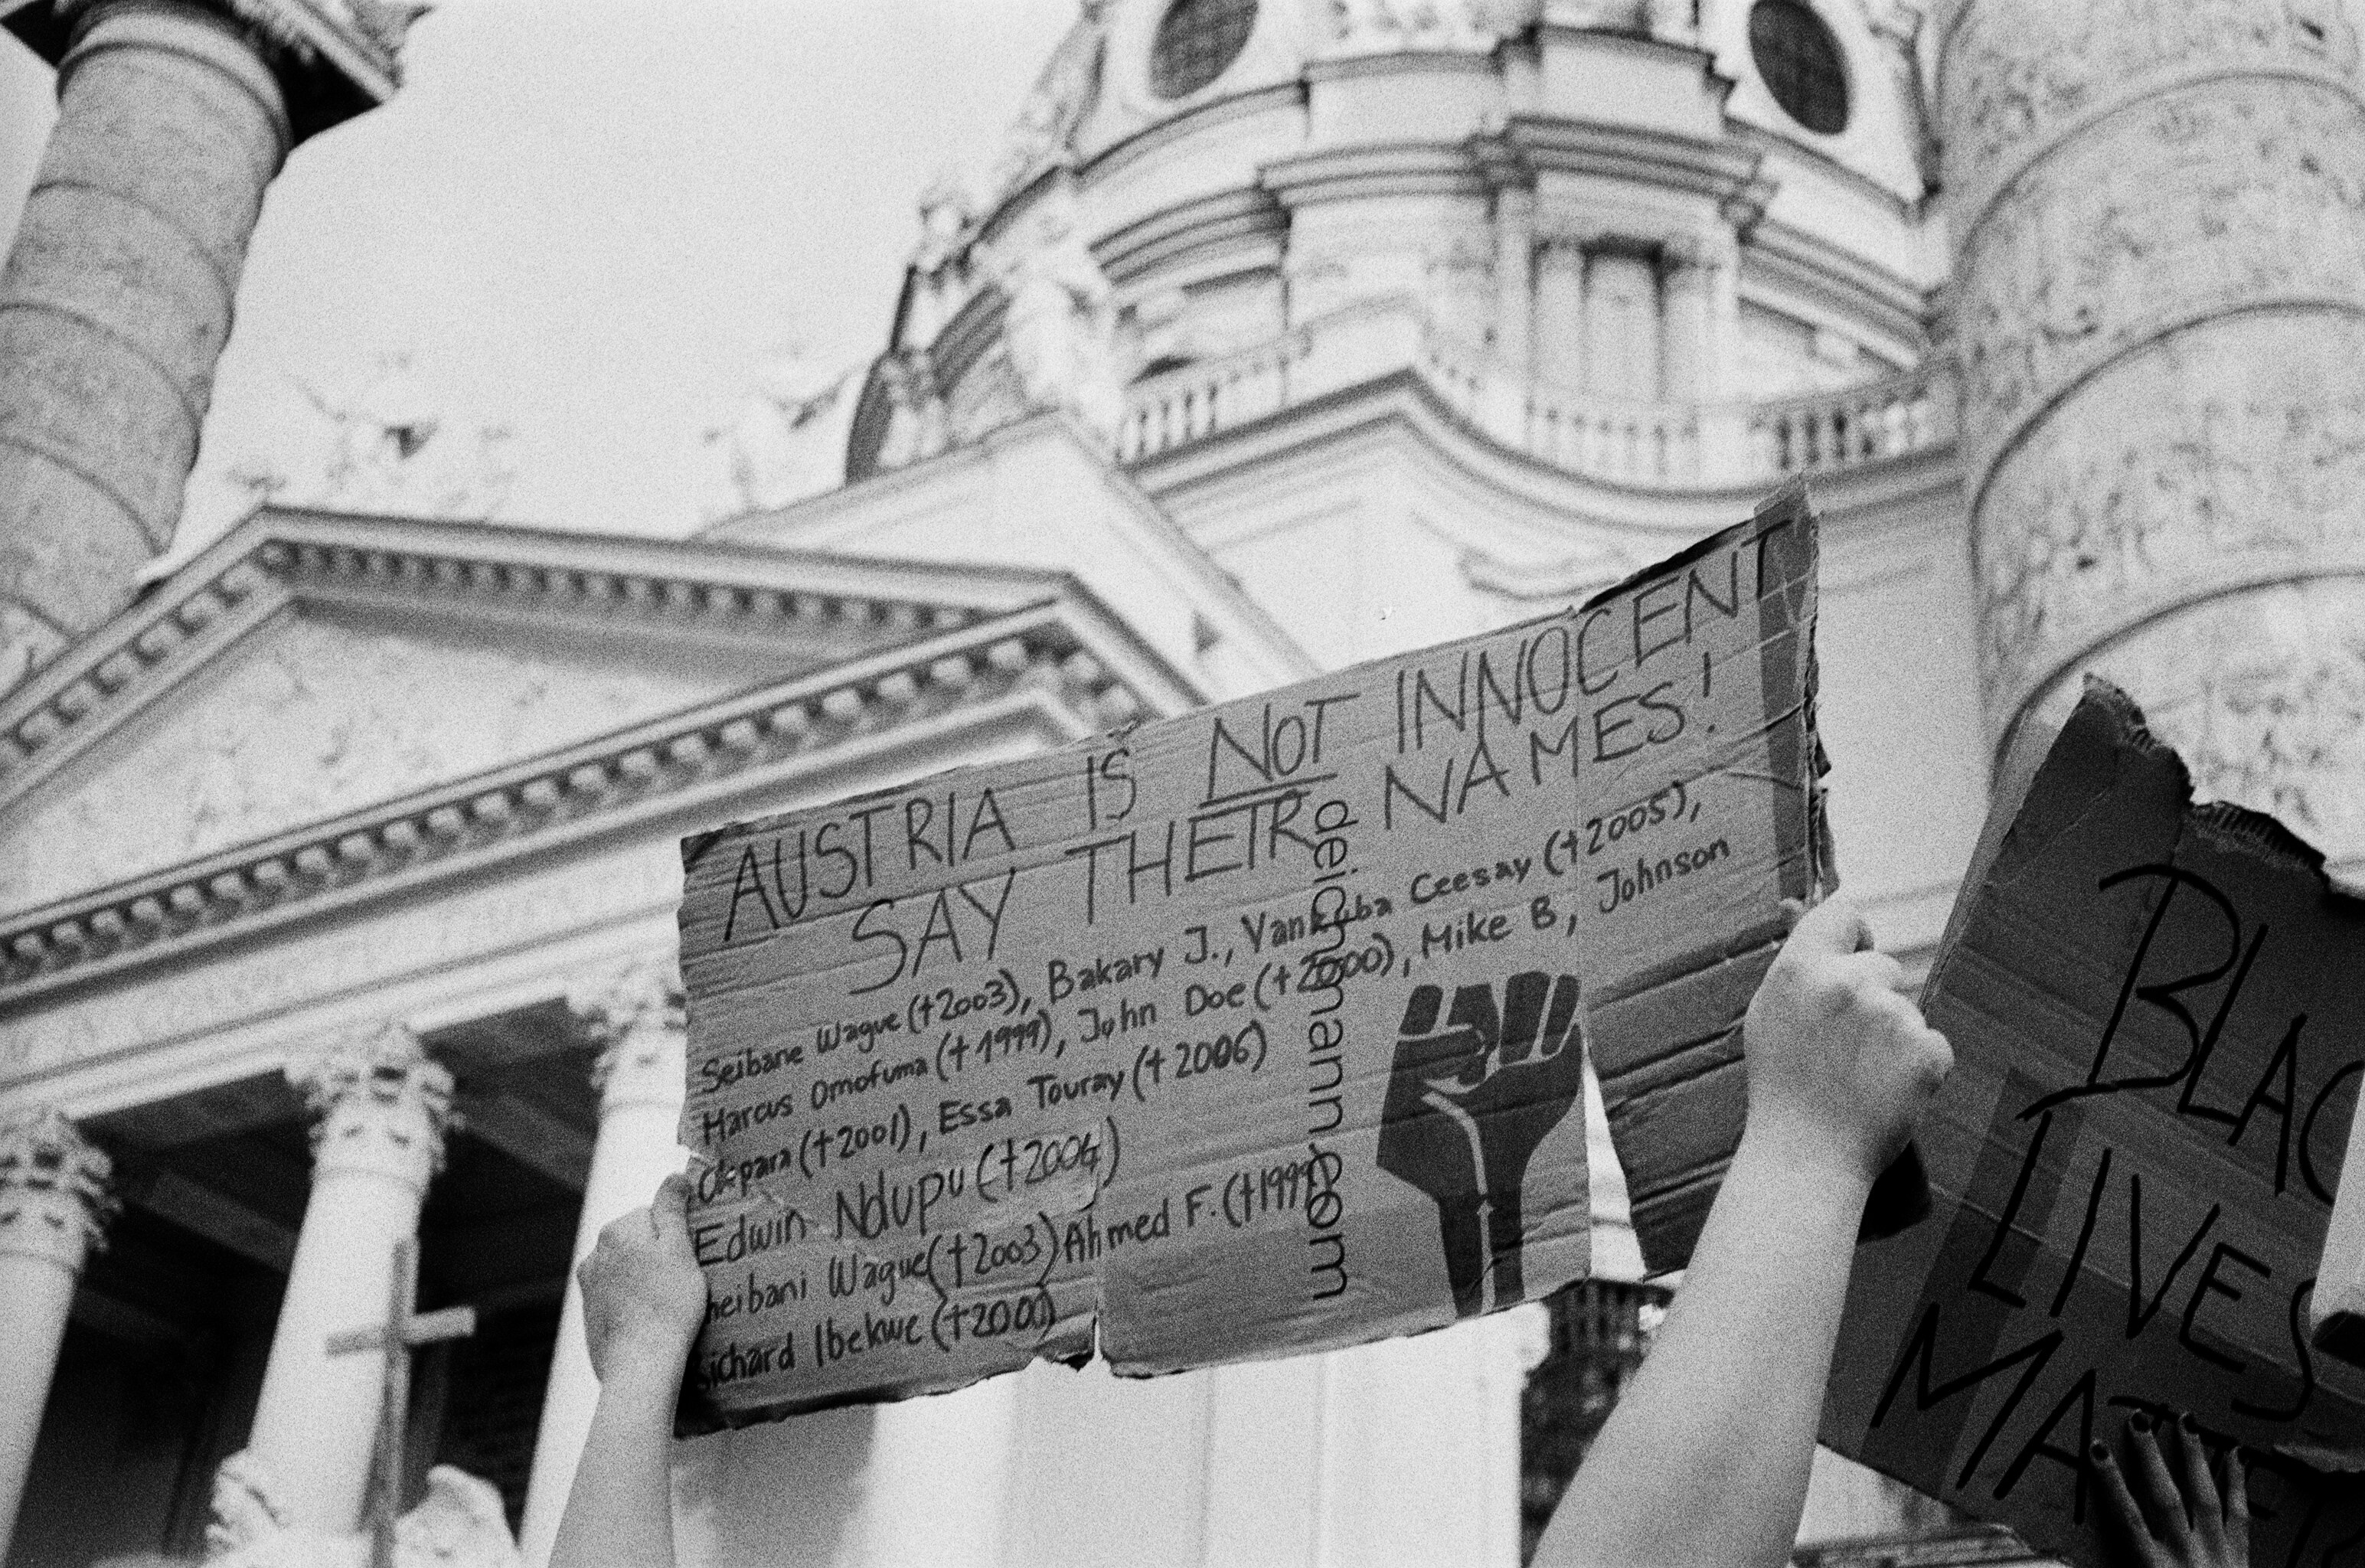 AUSTRIA IS NOT INNOCENT
SAY THEIR NAMES!
Seibane Wague (†2003), Bakary J., Vankuba Ceesay (†2005),
Marcus Omofuma (†1999), John Doe (†2000), Mike B, Johnson
Okpara (†2001), Essa Touray (†2006)
Edwin Ndupu (†2004)
heibani Wague (†2003) Ahmed F. (†1999)
Richard Ibekwe (†2000)
deichmann.com
BLAC
LIVES
MATTER